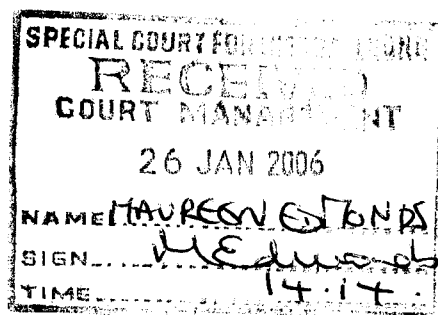 SPECIAL COURT FOR
RECEIVED
COURT MANAGEMENT
26 JAN 2006
NAME MAUREEN EDMONDS
SIGN MEdmonds
TIME 14.14.